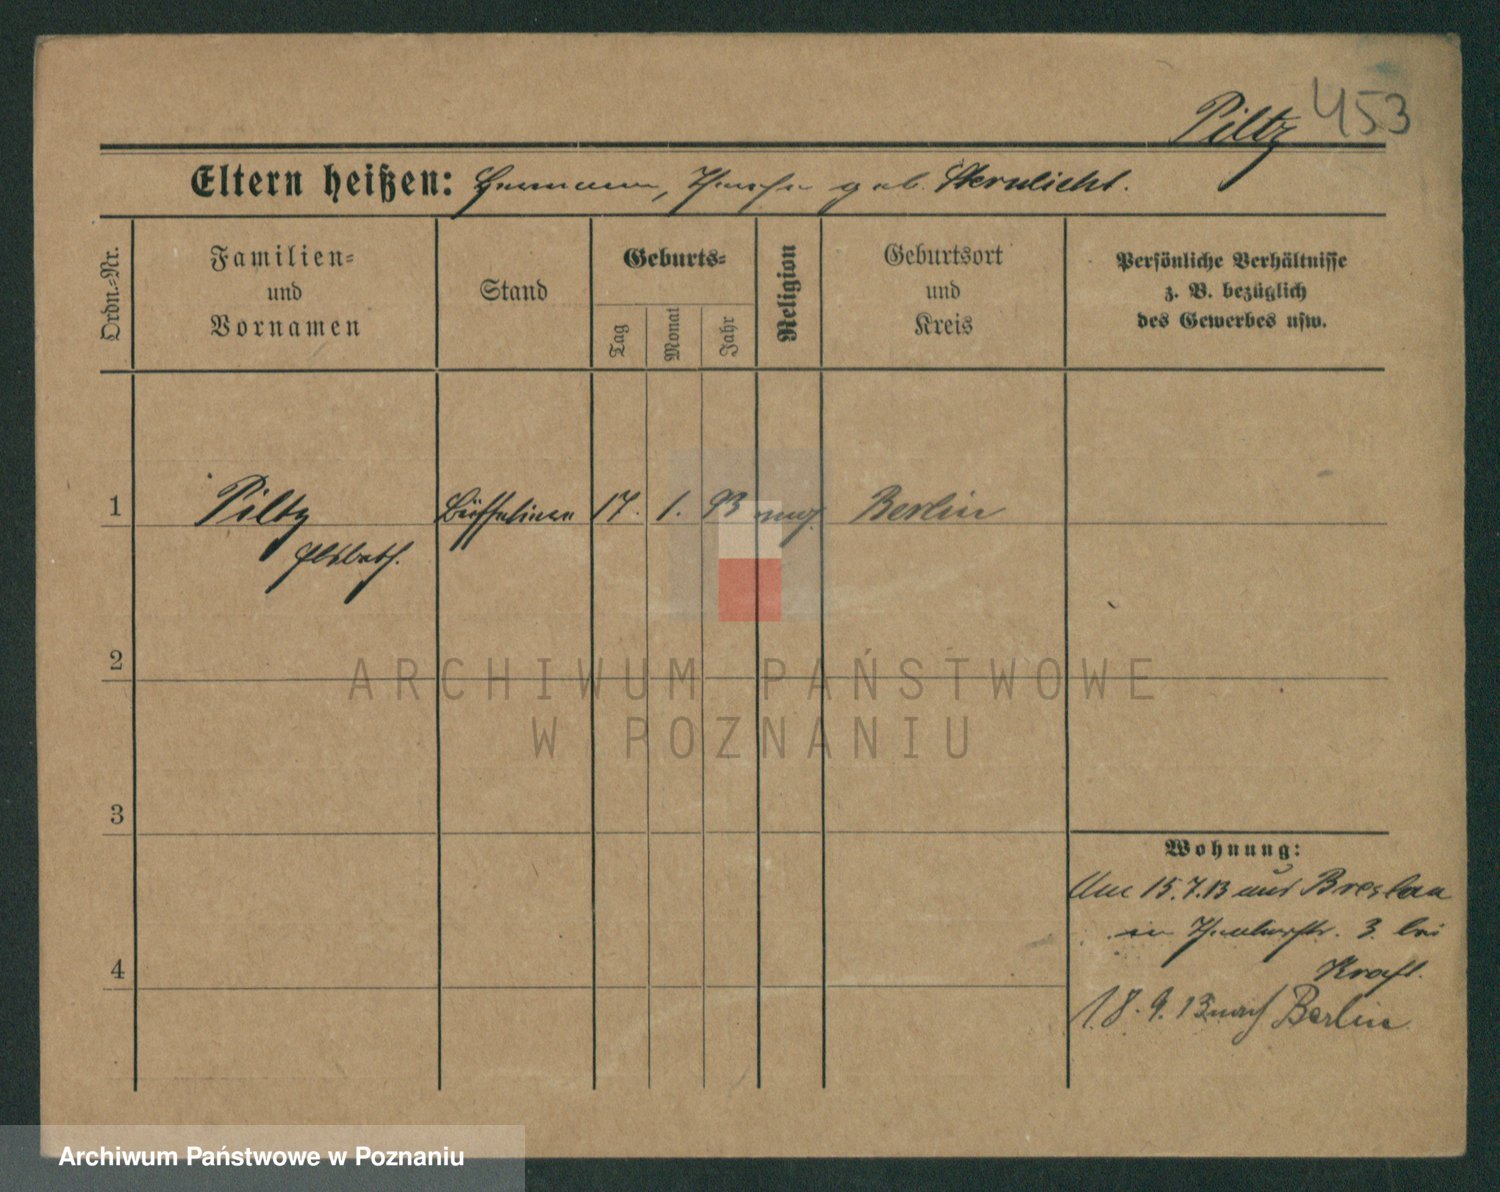 Piltz 453
Eltern heißen: Hermann, geb. Sternlicht.
Ordn.-Nr.
Familien-
und
Vornamen
Stand
Geburts-
Tag
Monat
Jahr
Religion
Geburtsort
und
Kreis
Persönliche Verhältnisse
z. B. bezüglich
des Gewerbes usw.
1 Piltz Büffetiere 17. 1. 93 Berlin
Elsbeth.
2
ARCHIWUM PAŃSTWOWE
W POZNANIU
3
Wohnung:
Am 15.7.13 aus Breslau
3. bei
4
Kraft.
18.9.13 nach Berlin
Archiwum Państwowe w Poznaniu